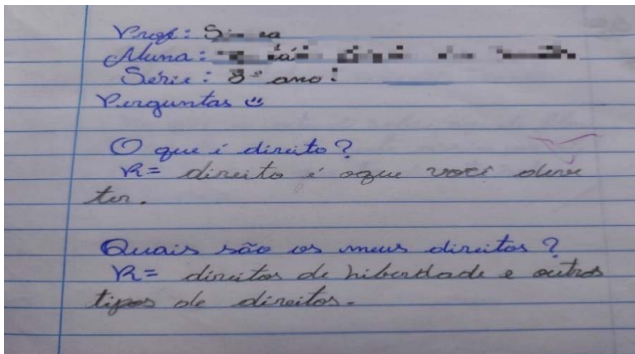 Prof:
Aluna:
Série: 8º ano:
Perguntas
O que é direito?
R= direito é oque você deve
ter.
Quais são os meus direitos?
R= direitos de liberdade e outros
tipos de direitos.